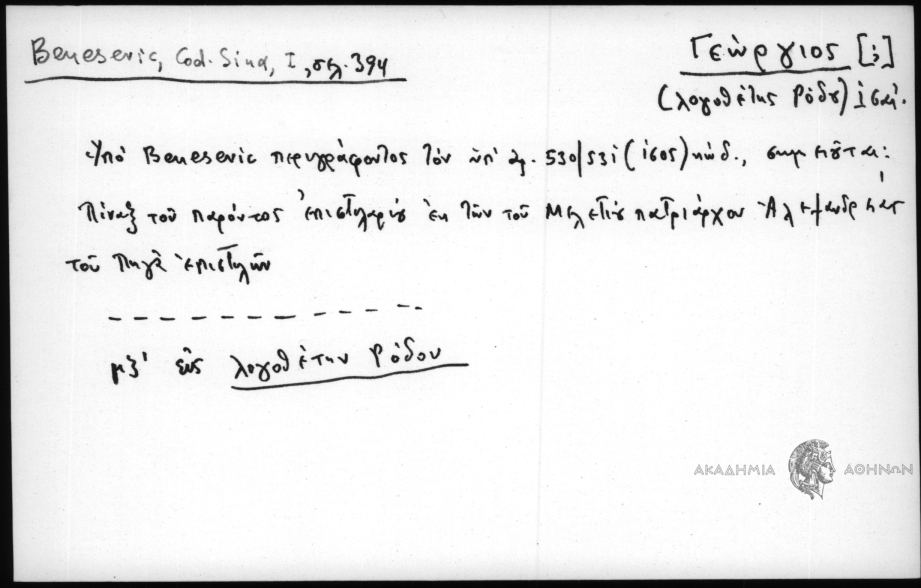 Benesevic, Cod. Sina, I, σελ. 394
Γεώργιος [;]
(λογοθέτης Ρόδου) ις αί.
Ὑπό Benesevic περιγράφοντος τόν ὑπ' ἀρ. 530/531 (ισος) κώδ., σημειοῦται:
Πίναξ τοῦ παρόντος ἐπιστολαρίου ἐκ τῶν τοῦ Μελετίου πατριάρχου Ἀλεξανδρείας
τοῦ Πηγᾶ ἐπιστολῶν
μξ' εἰς λογοθέτην Ρόδου
ΑΚΑΔΗΜΙΑ ΑΘΗΝΩΝ